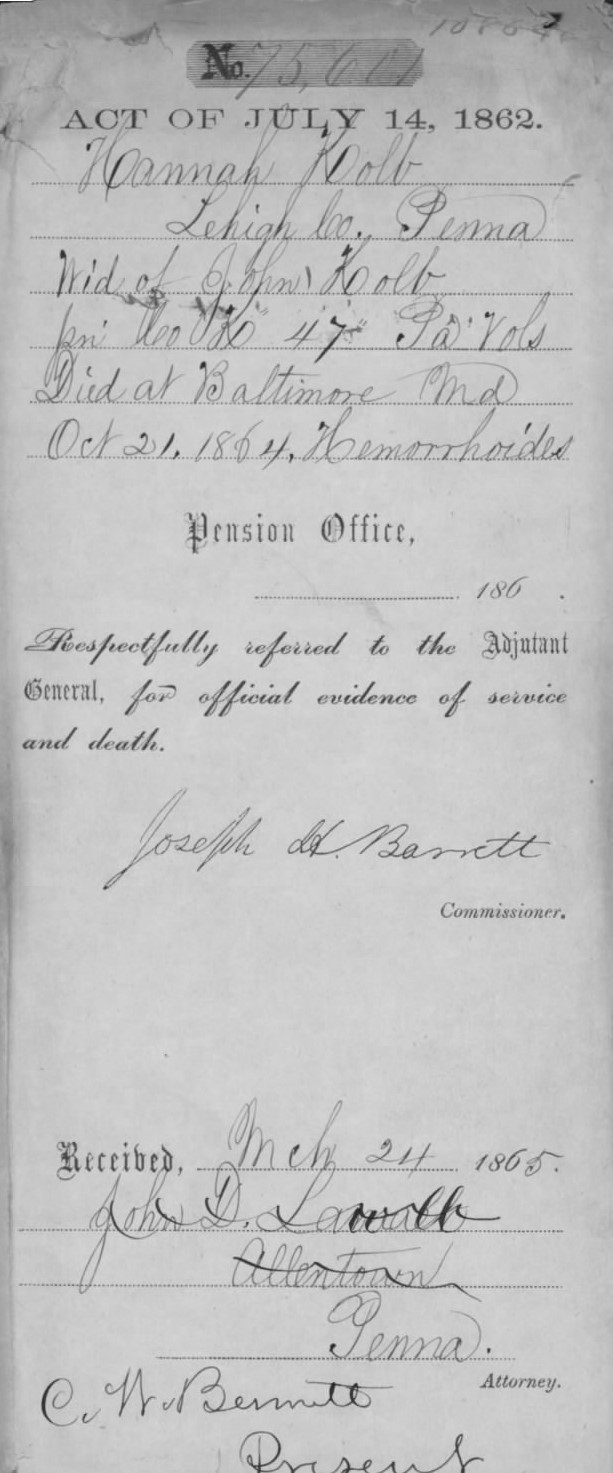 No. 75,601
ACT OF JULY 14, 1862.
Hannah Kolb
Lehigh Co., Penna
Wid of John Kolb
pri Co "K" 47" Pa Vols
Died at Baltimore Md
Oct 21, 1864, Hemorrhoides
Pension Office,
186 .
Respectfully referred to the Adjutant
General, for official evidence of service
and death.
Joseph H. Barrett
Commissioner.
Received, Mch 24 1865.
John D. Lawall
Allentown
Penna.
Attorney.
C. W. Bennett
Present